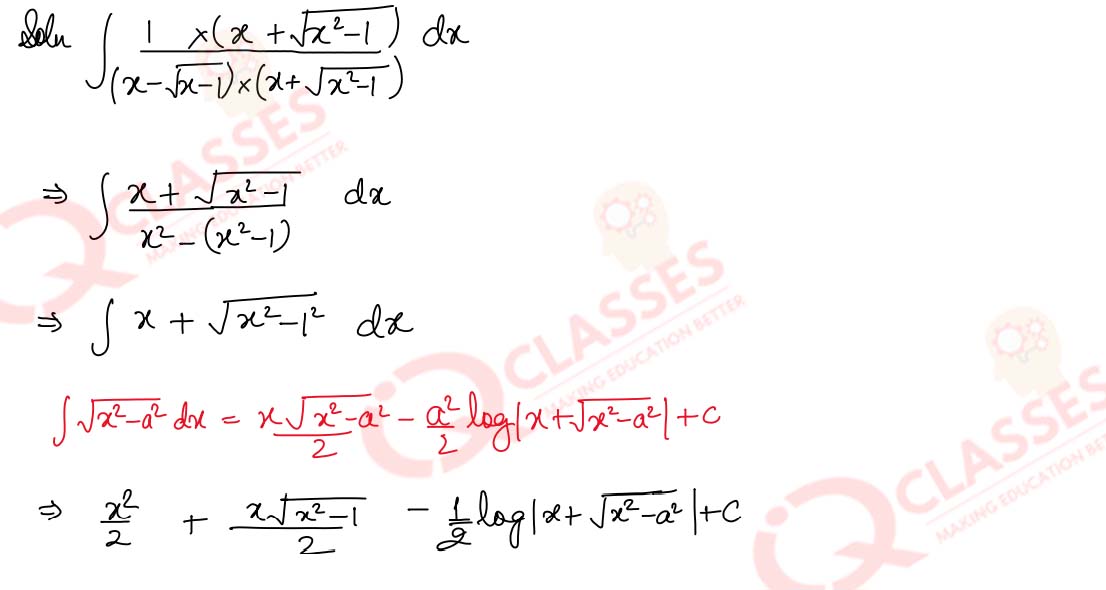 Soln ∫ 1 ×(x + √(x²−1)) / (x−√(x−1))×(x+√(x²−1)) dx
⇒ ∫ x + √(x²−1) / x² − (x²−1) dx
⇒ ∫ x + √(x²−1²) dx
∫ √(x²−a²) dx = x√(x²−a²)/2 − a²/2 log|x+√(x²−a²)| + C
⇒ x²/2 + x√(x²−1)/2 − 1/2 log|x+√(x²−a²)| + C
CLASSES
MAKING EDUCATION BETTER
CLASSES
MAKING EDUCATION BETTER
CLASSES
MAKING EDUCATION BETTER